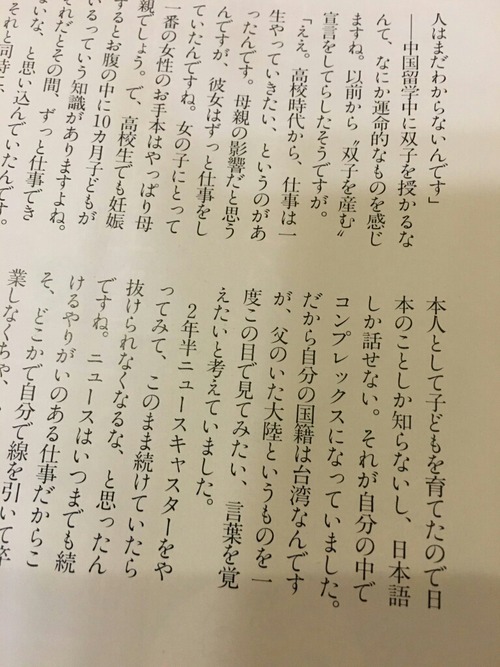 人はまだわからないんです」
――中国留学中に双子を授かるな
んて、なにか運命的なものを感じ
ますね。以前から〝双子を産む〟
宣言をしてらしたそうですが。
「ええ。高校時代から、仕事は一
生やっていきたい、というのがあ
ったんです。母親の影響だと思う
んですが、彼女はずっと仕事をし
ていたんですね。女の子にとって
一番の女性のお手本はやっぱり母
親でしょう。で、高校生でも妊娠
するとお腹の中に10カ月子どもが
いるっていう知識がありますよね。
それだとその間、ずっと仕事でき
ないな、と思い込んでいたんです。
それと同時に
本人として子どもを育てたので日
本のことしか知らないし、日本語
しか話せない。それが自分の中で
コンプレックスになっていました。
だから自分の国籍は台湾なんです
が、父のいた大陸というものを一
度この目で見てみたい、言葉を覚
えたいと考えていました。
2年半ニュースキャスターをや
ってみて、このまま続けていたら
抜けられなくなるな、と思ったん
ですね。ニュースはいつまでも続
けるやりがいのある仕事だからこ
そ、どこかで自分で線を引いて卒
業しなくちゃ、